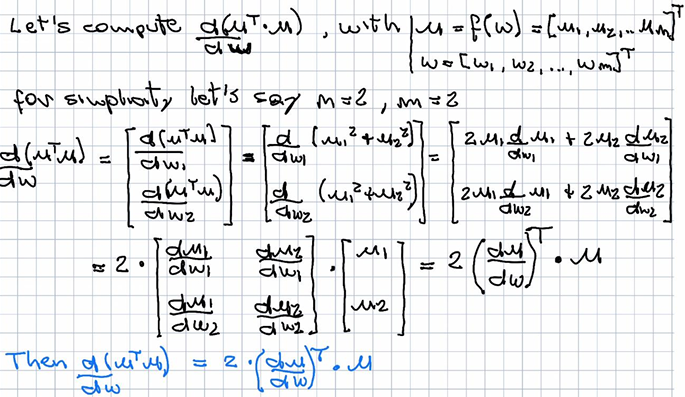 Let's compute d(μᵀ·μ)/dw , with | μ = f(w) = [μ₁, μ₂, .. μₙ]ᵀ
w = [w₁, w₂, ..., wₘ]ᵀ
for simplicity let's say n=2 , m=2
d(μᵀμ)/dw = [d(μᵀμ)/dw₁ ; d(μᵀμ)/dw₂] = [d/dw₁ (μ₁² + μ₂²) ; d/dw₂ (μ₁² + μ₂²)] = [2μ₁ d/dw₁ μ₁ + 2μ₂ dμ₂/dw₁ ; 2μ₁ d/dw₂ μ₁ + 2μ₂ dμ₂/dw₂]
= 2 · [dμ₁/dw₁ dμ₂/dw₁ ; dμ₁/dw₂ dμ₂/dw₂] · [μ₁ ; μ₂] = 2 (dμ/dw)ᵀ · μ
Then d(μᵀμ)/dw = 2 · (dμ/dw)ᵀ · μ